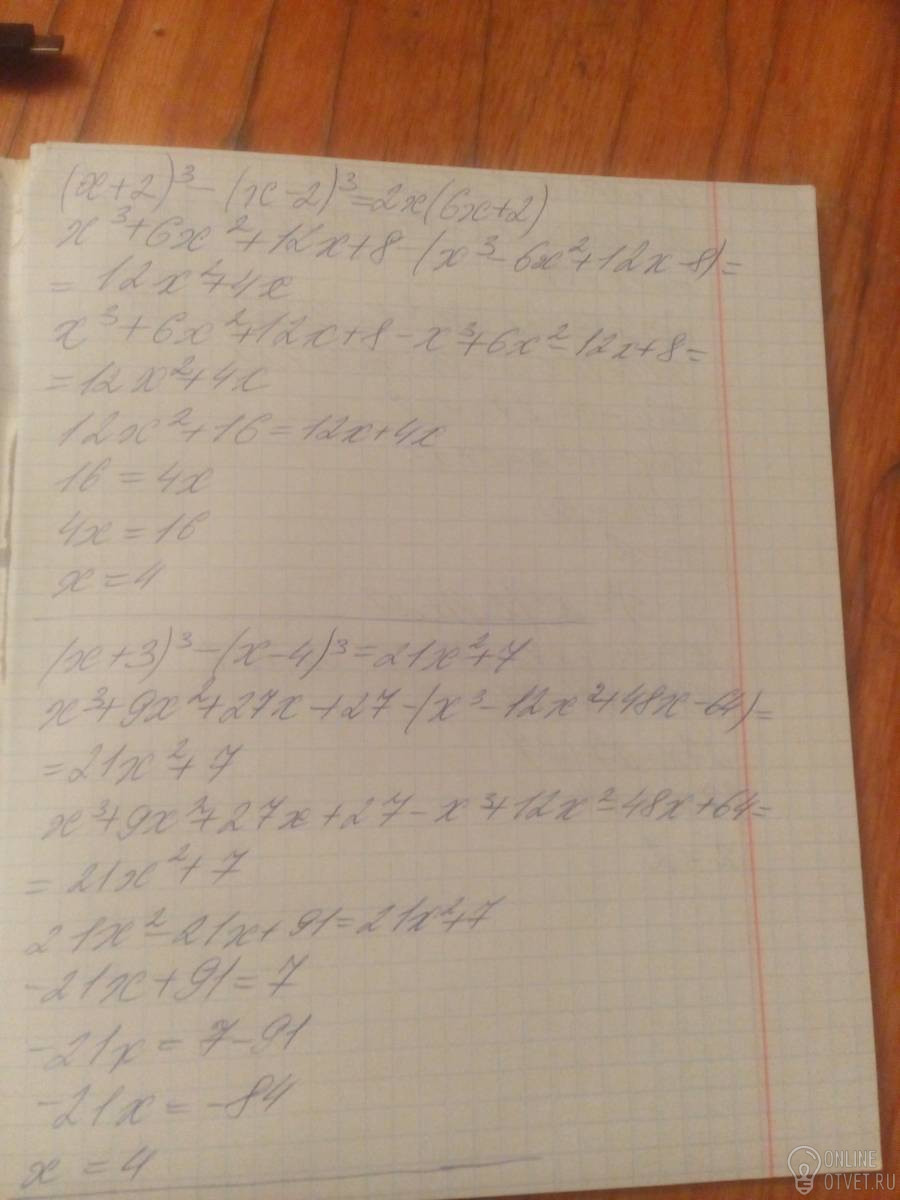 (x+2)³-(x-2)³=2x(6x+2)
x³+6x²+12x+8-(x³-6x²+12x-8)=
=12x²+4x
x³+6x²+12x+8-x³+6x²-12x+8=
=12x²+4x
12x²+16=12x+4x
16=4x
4x=16
x=4
(x+3)³-(x-4)³=21x²+7
x³+9x²+27x+27-(x³-12x²+48x-64)=
=21x²+7
x³+9x²+27x+27-x³+12x²-48x+64=
=21x²+7
21x²-21x+91=21x²+7
-21x+91=7
-21x=7-91
-21x=-84
x=4
ONLINE
OTVET.RU